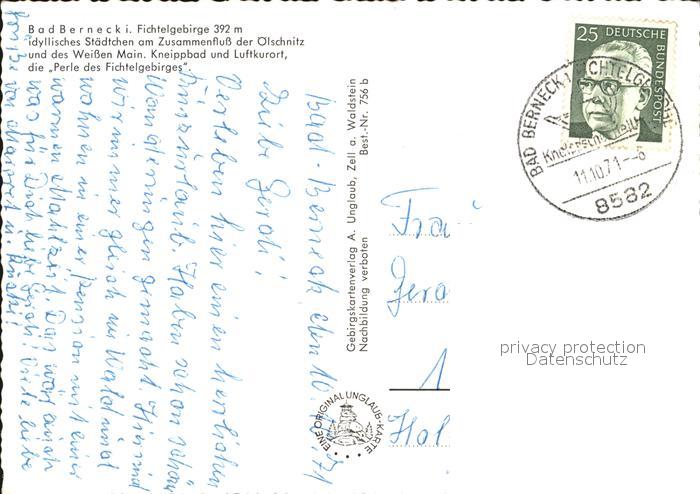 Bad Berneck i. Fichtelgebirge 392 m
idyllisches Städtchen am Zusammenfluß der Ölschnitz
und des Weißen Main. Kneippbad und Luftkurort,
die „Perle des Fichtelgebirges“
Bad-Berneck den 10.
Liebe Gerdi!
Verleben hier einen herrlichen
Kurzurlaub. Haben schon schöne
Wanderungen gemacht. Hier sind
wir immer gleich im Wald und
wohnen in einer Pension mit einer
warmen Mahlzeit. Das wär auch
was für Dich liebe Gerdi! Viele liebe
Grüße von Margret u.
Gebirgskartenverlag A. Unglaub, Zell a. Waldstein
Nachbildung verboten
Best.-Nr. 756 b
EINE ORIGINAL UNGLAUB-KARTE
25 DEUTSCHE BUNDESPOST
BAD BERNECK i. FICHTELGEBIRGE
11.10.71--8
8582
Frau
1
privacy protection
Datenschutz